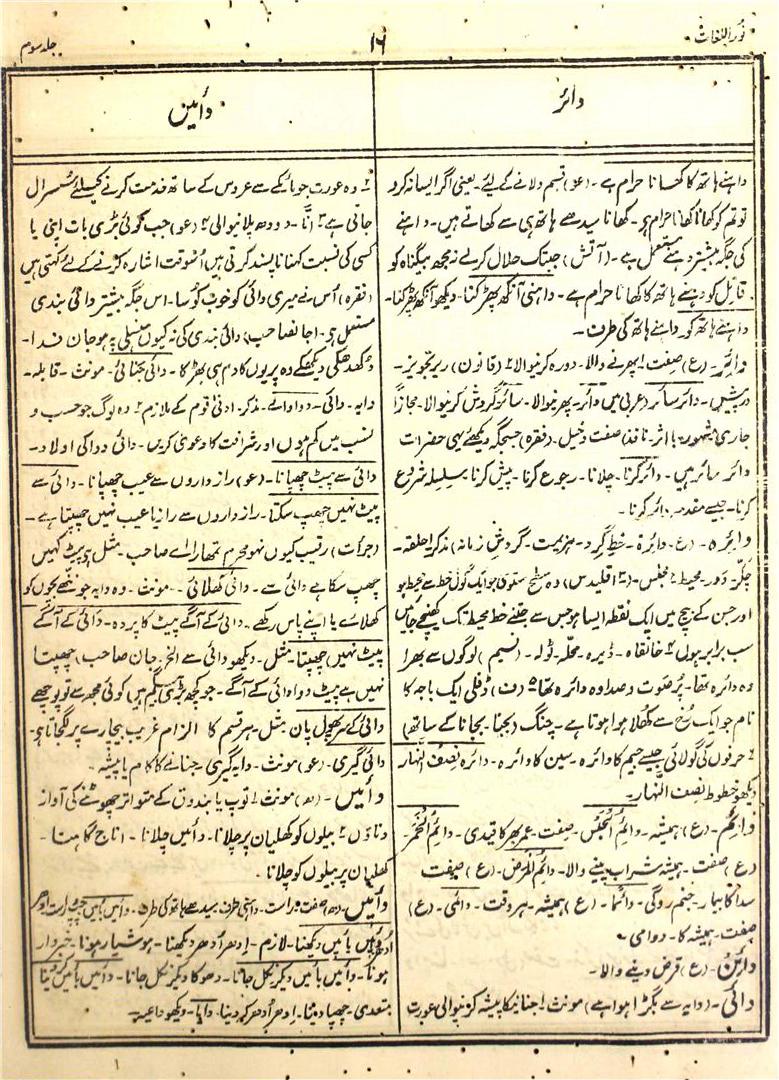 نور اللغات
۱۶
جلد سوم
دائر
دائیں
داہنے ہاتھ کا کھانا حرام ہے۔ (عو) قسم دلانے کے لئے۔ یعنی اگر ایسا نہ کرو
تو تم کو کھانا کھانا حرام ہو۔ کھانا سیدھے ہاتھ ہی سے کھاتے ہیں۔ داہنے
کی جگہ بیشتر دہنے مستعمل ہے۔ (آتش) جبتک حلال کرلے نہ مجھ بیگناہ کو
قاتل کو دہنے ہاتھ کا کھانا حرام ہے۔ داہنی آنکھ پھڑکنا۔ دیکھو آنکھ پھڑکنا۔
داہنے ہاتھ کو۔ داہنے ہاتھ کی طرف۔
دائر۔ (ع) صفت ۱ پھرنے والا۔ دورہ کرنیوالا ۲ (قانون) زیر تجویز۔
درپیش۔ دائر سائر (عربی میں دائر۔ پھرنیوالا۔ سائر گردش کرنیوالا۔ مجازاً
جاری۔ مشہور۔ با اثر۔ نافذ) صفت دخیل۔ (فقرہ) جس جگہ دیکھئے یہی حضرات
دائر سائر ہیں۔ دائر کرنا۔ چلانا۔ رجوع کرنا۔ پیش کرنا۔ سلسلہ شروع
کرنا۔ جیسے مقدمہ دائر کرنا۔
دائرہ۔ (ع۔ دائرۃ۔ خط گرد۔ ہزیمت۔ گردش زمانہ) مذکر ۱ حلقہ۔
چکر۔ دور۔ محیط ۲ مجلس۔ ۳ (اقلیدس) وہ سطح مستوی جو ایک گول خط سے محیط ہو
اور جس کے بیچ میں ایک نقطہ ایسا ہو جس سے جتنے خط محیط تک کھینچے جائیں
سب برابر ہوں ۴ خانقاہ۔ ڈیرہ۔ محلہ۔ ٹولہ۔ (نسیم) لوگوں سے بھرا
وہ دائرہ تھا۔ پُر صوت و صدا وہ دائرہ تھا ۵ (ف) ڈفلی ایک باجہ کا
نام جو ایک رُخ سے کھلا ہوا ہوتا ہے۔ چنگ (بجنا۔ بجانا کے ساتھ)
۶ حرفوں کی گولائی جیسے جیم کا دائرہ۔ سین کا دائرہ۔ دائرہ نصف النہار
دیکھو خطوط نصف النہار۔
دائم۔ (ع) ہمیشہ۔ دائم الحبس۔ صفت۔ عمر بھر کا قیدی۔ دائم الخمر۔
(ع) صفت۔ ہمیشہ شراب پینے والا۔ دائم المرض۔ (ع) صفت
سدا کا بیمار۔ جنم روگی۔ دائما۔ (ع) ہمیشہ۔ ہر وقت۔ دائمی۔ (ع)
صفت۔ ہمیشہ کا۔ دوامی۔
دائن۔ (ع) قرض دینے والا۔
دائی۔ (دایہ سے بگڑا ہوا ہے) مونث ۱ جنانے کا پیشہ کرنیوالی عورت
۲ وہ عورت جو مائکے سے عروس کے ساتھ خدمت کرنے کیلئے سُسرال
جاتی ہے ۳ اَنّا۔ دودھ پلانیوالی ۴ (عو) جب کوئی بڑی بات اپنی یا
کسی کی نسبت کہنا ناپسند کرتی ہیں اُسوقت اشارہ کرنے کے لئے کہتی ہیں
(فقرہ) اُس نے میری دائی کو خوب کوسا۔ اس جگہ بیشتر دائی بندی
مستعمل ہے۔ (جانصاحب) دائی بندی کی نہ کیوں منسلی پہ ہو جان فدا۔
دُکھدھکی دیکھکے دہ پریوں کا دم ہی بھڑکا۔ دائی جنائی۔ مونث۔ قابلہ۔
دایہ۔ دائی۔ دوا والے۔ مذکر۔ ادنیٰ قوم کے ملازم ۲ وہ لوگ جو حسب و
نسب میں کم ہوں اور شرافت کا دعویٰ کریں۔ دائی دوا کی اولاد۔
دائی سے پیٹ چھپانا۔ (عو) راز داروں سے عیب چھپانا۔ دائی سے
پیٹ نہیں چھپ سکتا۔ راز داروں سے راز یا عیب نہیں چھپتا ہے۔
(جرأت) رقیب کیوں نہو محرم تمھارا اے صاحب۔ مثل ہے پیٹ کہیں
چھپ سکا ہے دائی سے۔ دائی کھلائی۔ مونث۔ وہ دایہ جو ننھے بچوں کو
کھلائے یا اپنے پاس رکھے۔ دائی کے آگے پیٹ کا پردہ۔ دائی کے آگے
پیٹ نہیں چھپتا۔ مثل۔ دیکھو دائی سے الخ (جان صاحب) چھپتا
نہیں ہے پیٹ دوا دائی کے آگے۔ جو کچھ بڑھی بیگم ہیں کوئی مجھ سے تو پوچھے
دائی کے سر پھول پان۔ مثل۔ ہر قسم کا الزام غریب بیچارے پر لگجاتا ہے۔
دائی گیری۔ (عو) مونث۔ دایہ گیری۔ جنانے کا کام یا پیشہ۔
دائیں۔ (ھ) مونث ۱ توپ یا بندوق کے متواتر چھوٹنے کی آواز
دناؤں ۲ بیلوں کو کھلیان پر چلانا۔ دائیں چلانا۔ اناج گاہنا۔
کھلیان پر بیلوں کو چلانا۔
دائیں۔ (ھ) صفت۔ راست۔ داہنی طرف۔ سیدھے ہاتھ کی طرف۔ دائیں بائیں۔ چپ راست۔ ادھر
اُدھر۔ دائیں بائیں دیکھنا۔ لازم۔ اِدھر اُدھر دیکھنا۔ ہوشیار ہونا۔ خبردار
ہونا۔ دائیں بائیں دیکر نکل جانا۔ دھوکا دیکر نکل جانا۔ دائیں بائیں کر دینا
متعدی۔ چھپا دینا۔ اِدھر اُدھر کر دینا۔ دایا۔ دیکھو داعیہ۔